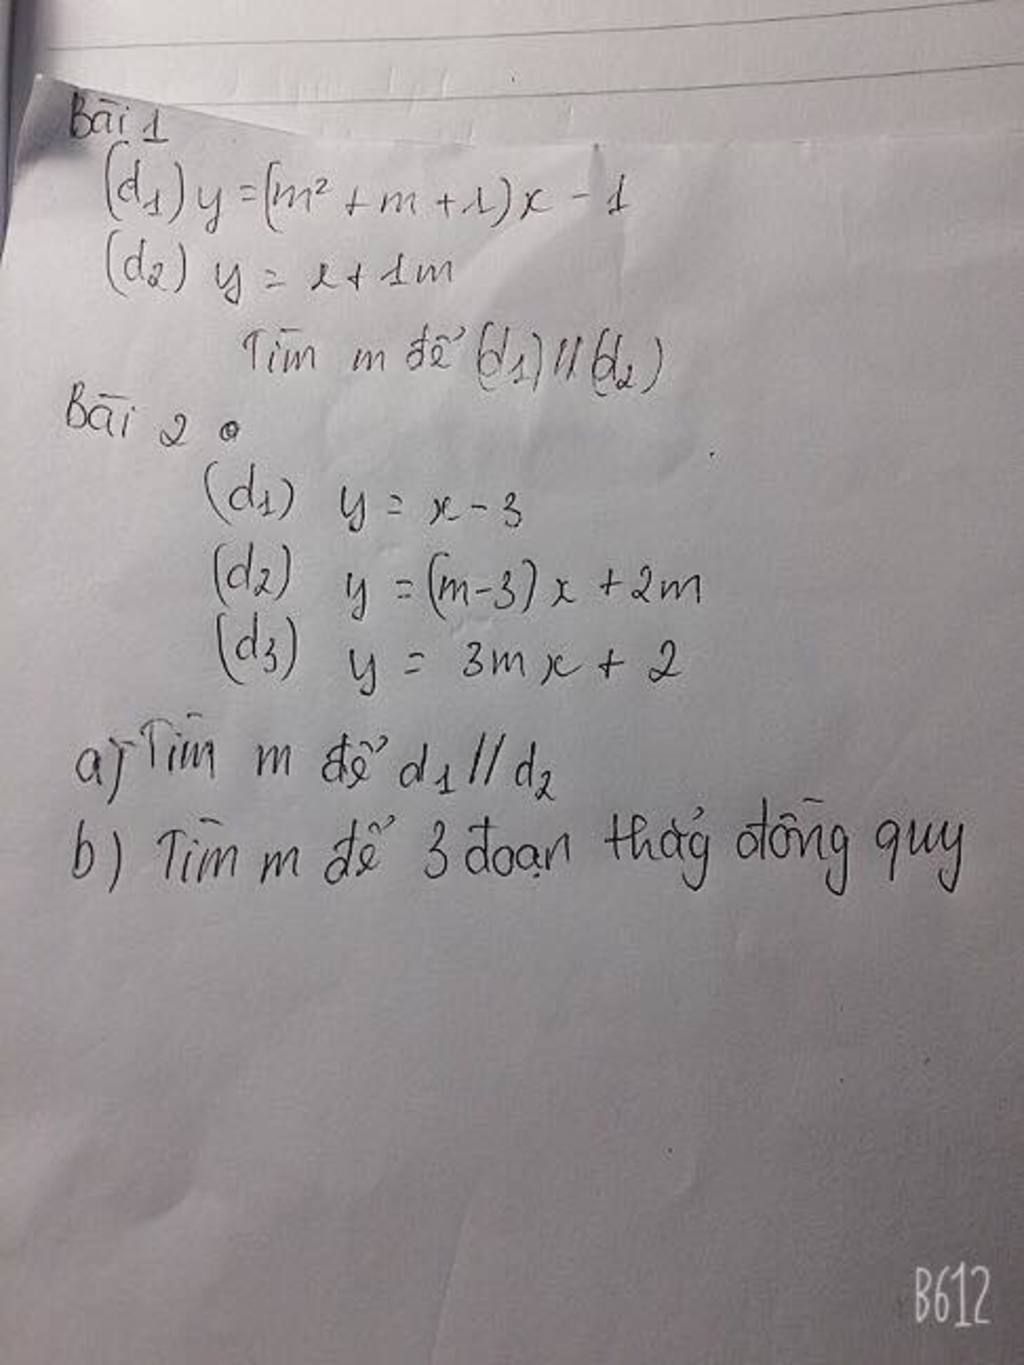 Bài 1
(d1) y = (m² + m + 1)x - 1
(d2) y = x + 1m
Tìm m để (d1) // (d2)
Bài 2
(d1) y = x - 3
(d2) y = (m-3)x + 2m
(d3) y = 3mx + 2
a) Tìm m để d1 // d2
b) Tìm m để 3 đoạn thảg đồng quy
B612